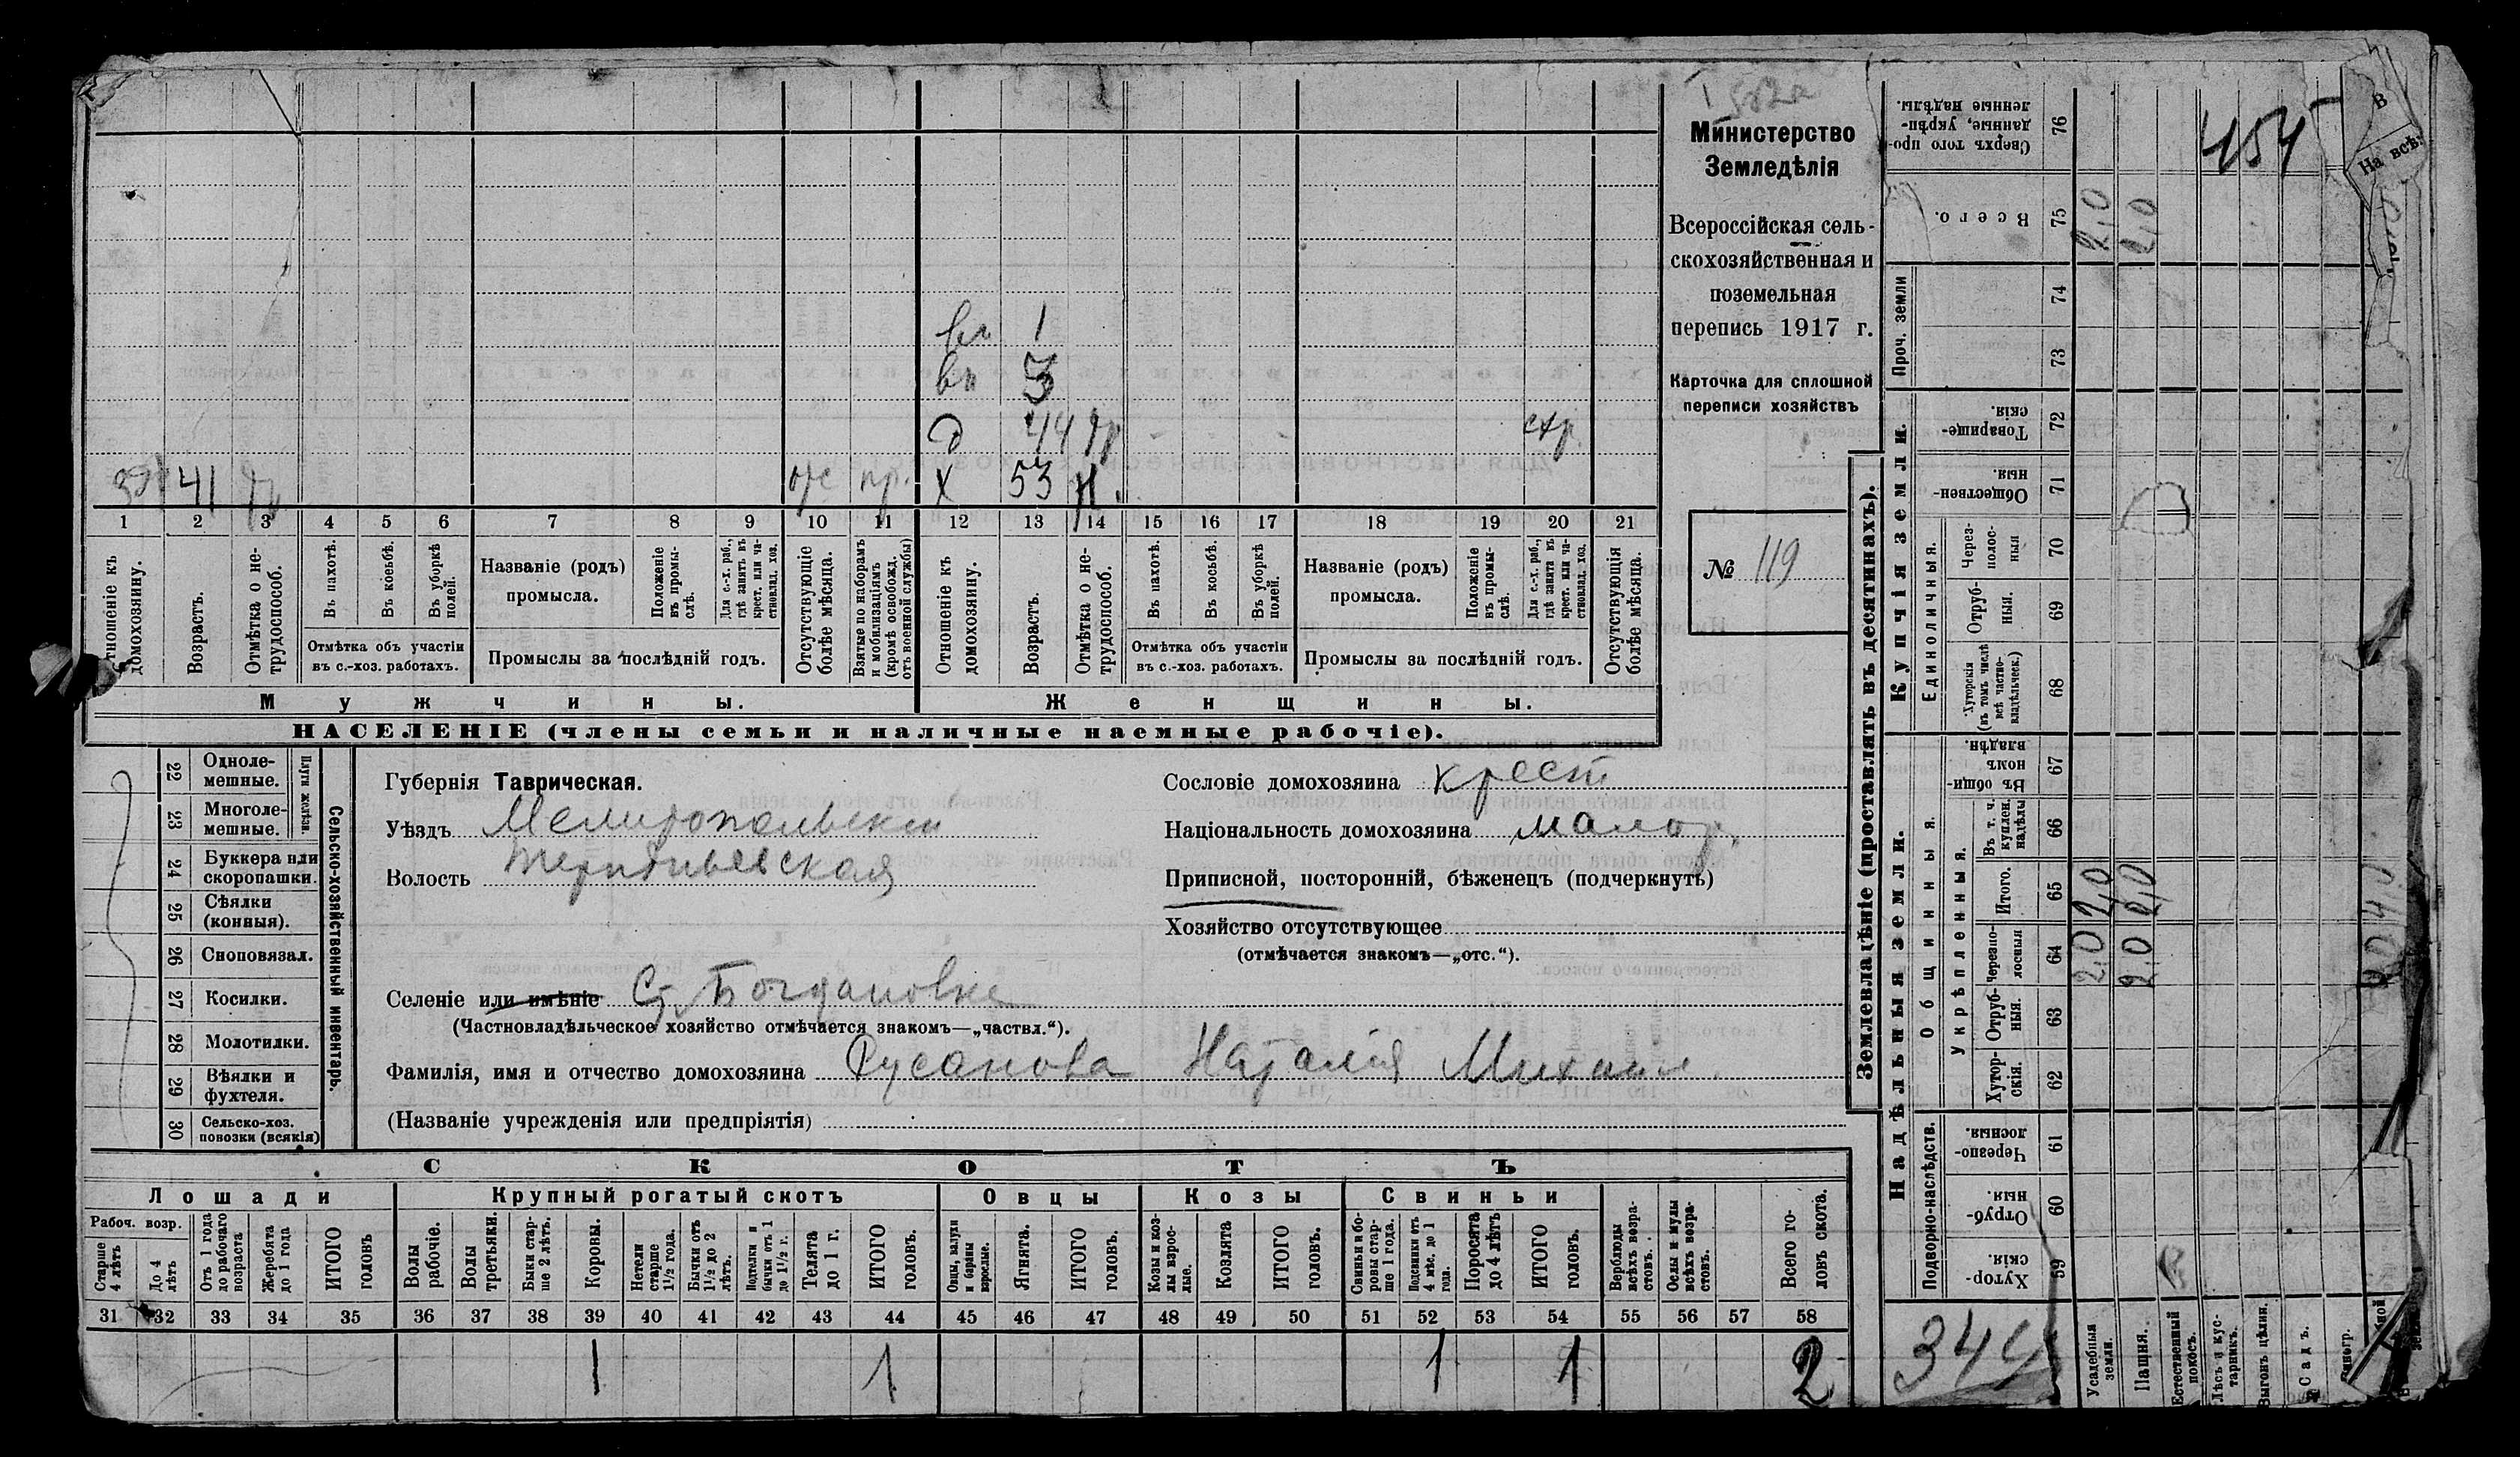 Министерство
Земледѣлія
Всероссійская сель-
скохозяйственная и
поземельная
перепись 1917 г.
Карточка для сплошной
переписи хозяйствъ
№ 119
вн 1
вн 3
д 44 тр стр.
зят 41 отс пр. х 53 н.
1 2 3 4 5 6 7 8 9 10 11 12 13 14 15 16 17 18 19 20 21
Отношеніе къ домохозяину.
Возрастъ.
Отмѣтка о не-трудоспособ.
Въ пахотѣ.
Въ косьбѣ.
Въ уборкѣ полей.
Отмѣтка объ участіи
въ с.-хоз. работахъ.
Названіе (родъ)
промысла.
Положеніе въ промы-слѣ.
Для с.-х. раб., гдѣ занятъ въ крест. или ча-стновлад. хоз.
Промыслы за послѣдній годъ.
Отсутствующіе болѣе мѣсяца.
Взятые по наборамъ и мобилизаціямъ (кромѣ освобожд. отъ военной службы)
Отношеніе къ домохозяину.
Возрастъ.
Отмѣтка о не-трудоспособ.
Въ пахотѣ.
Въ косьбѣ.
Въ уборкѣ полей.
Отмѣтка объ участіи
въ с.-хоз. работахъ.
Названіе (родъ)
промысла.
Положеніе въ промы-слѣ.
Для с.-х. раб., гдѣ занята въ крест. или ча-стновлад. хоз.
Промыслы за послѣдній годъ.
Отсутствующія болѣе мѣсяца.
Мужчины. Женщины.
НАСЕЛЕНІЕ (члены семьи и наличные наемные рабочіе).
Сельско-хозяйственный инвентарь.
Плуги желѣзн.
22 Одноле-мешные.
23 Многоле-мешные.
24 Буккера или скоропашки.
25 Сѣялки (конныя).
26 Сноповязал.
27 Косилки.
28 Молотилки.
29 Вѣялки и фухтеля.
30 Сельско-хоз. повозки (всякія)
Губернія Таврическая.
Уѣздъ Мелитопольскій
Волость Терпѣньевская
Селеніе или имѣніе Ст. Богдановка
(Частновладѣльческое хозяйство отмѣчается знакомъ—„частвл.“).
Фамилія, имя и отчество домохозяина Русанова Наталія Михаил.
(Названіе учрежденія или предпріятія)
Сословіе домохозяина крест
Національность домохозяина малор.
Приписной, посторонній, бѣженецъ (подчеркнуть)
Хозяйство отсутствующее
(отмѣчается знакомъ—„отс.“).
СКОТЪ
Лошади Крупный рогатый скотъ Овцы Козы Свиньи
Рабоч. возр.
Старше 4 лѣтъ
До 4 лѣтъ
Отъ 1 года до рабочаго возраста
Жеребята до 1 года
ИТОГО головъ
Волы рабочіе.
Волы третьяки.
Быки стар-ше 2 лѣтъ.
Коровы.
Нетели старше 1½ года.
Бычки отъ 1½ до 2 лѣтъ.
Подтелки и бычки отъ 1 до 1½ г.
Телята до 1 г.
ИТОГО головъ.
Овцы, валухи и бараны взрослые.
Ягнята.
ИТОГО головъ.
Козы и коз-лы взрос-лые.
Козлята
ИТОГО головъ.
Свиньи и бо-ровы стар-ше 1 года.
Подсвинки отъ 4 мѣс. до 1 года.
Поросята до 4 лѣтъ
ИТОГО головъ.
Верблюды всѣхъ возра-стовъ.
Ослы и мулы всѣхъ возра-стовъ.
Всего го-ловъ скота.
31 32 33 34 35 36 37 38 39 40 41 42 43 44 45 46 47 48 49 50 51 52 53 54 55 56 57 58
1 1 1 1 2
Землевладѣніе (проставлять въ десятинахъ).
Купчія земли.
Проч. земли
Единоличныя.
76 Сверхъ того про-данные, укрѣп-ленные надѣлы.
75 Всего. 2,0 2,0
74
73
72 Товарище-скія.
71 Обществен-ныя.
70 Через-полос-ныя
69 Отруб-ныя.
68 Хуторскія (въ томъ числѣ всѣ частно-владѣльческ.)
Надѣльныя земли.
Общинныя.
Укрѣпленныя.
67 Въ общи-номъ владѣн.
66 Въ т. ч. куплен. надѣлы
65 Итого. 2,0 2,0
64 Черезпо-лосныя 2,0 2,0
63 Отруб-ныя.
62 Хутор-скія.
Подворно-наслѣдств.
61 Черезпо-лосныя.
60 Отруб-ныя.
59 Хутор-скія
Усадебныя земли.
Пашня.
Естественный покосъ.
Лѣсъ и кус-тарникъ.
Выгонъ цѣлин.
Садъ.
Виногр.
344
454
В
На всѣ